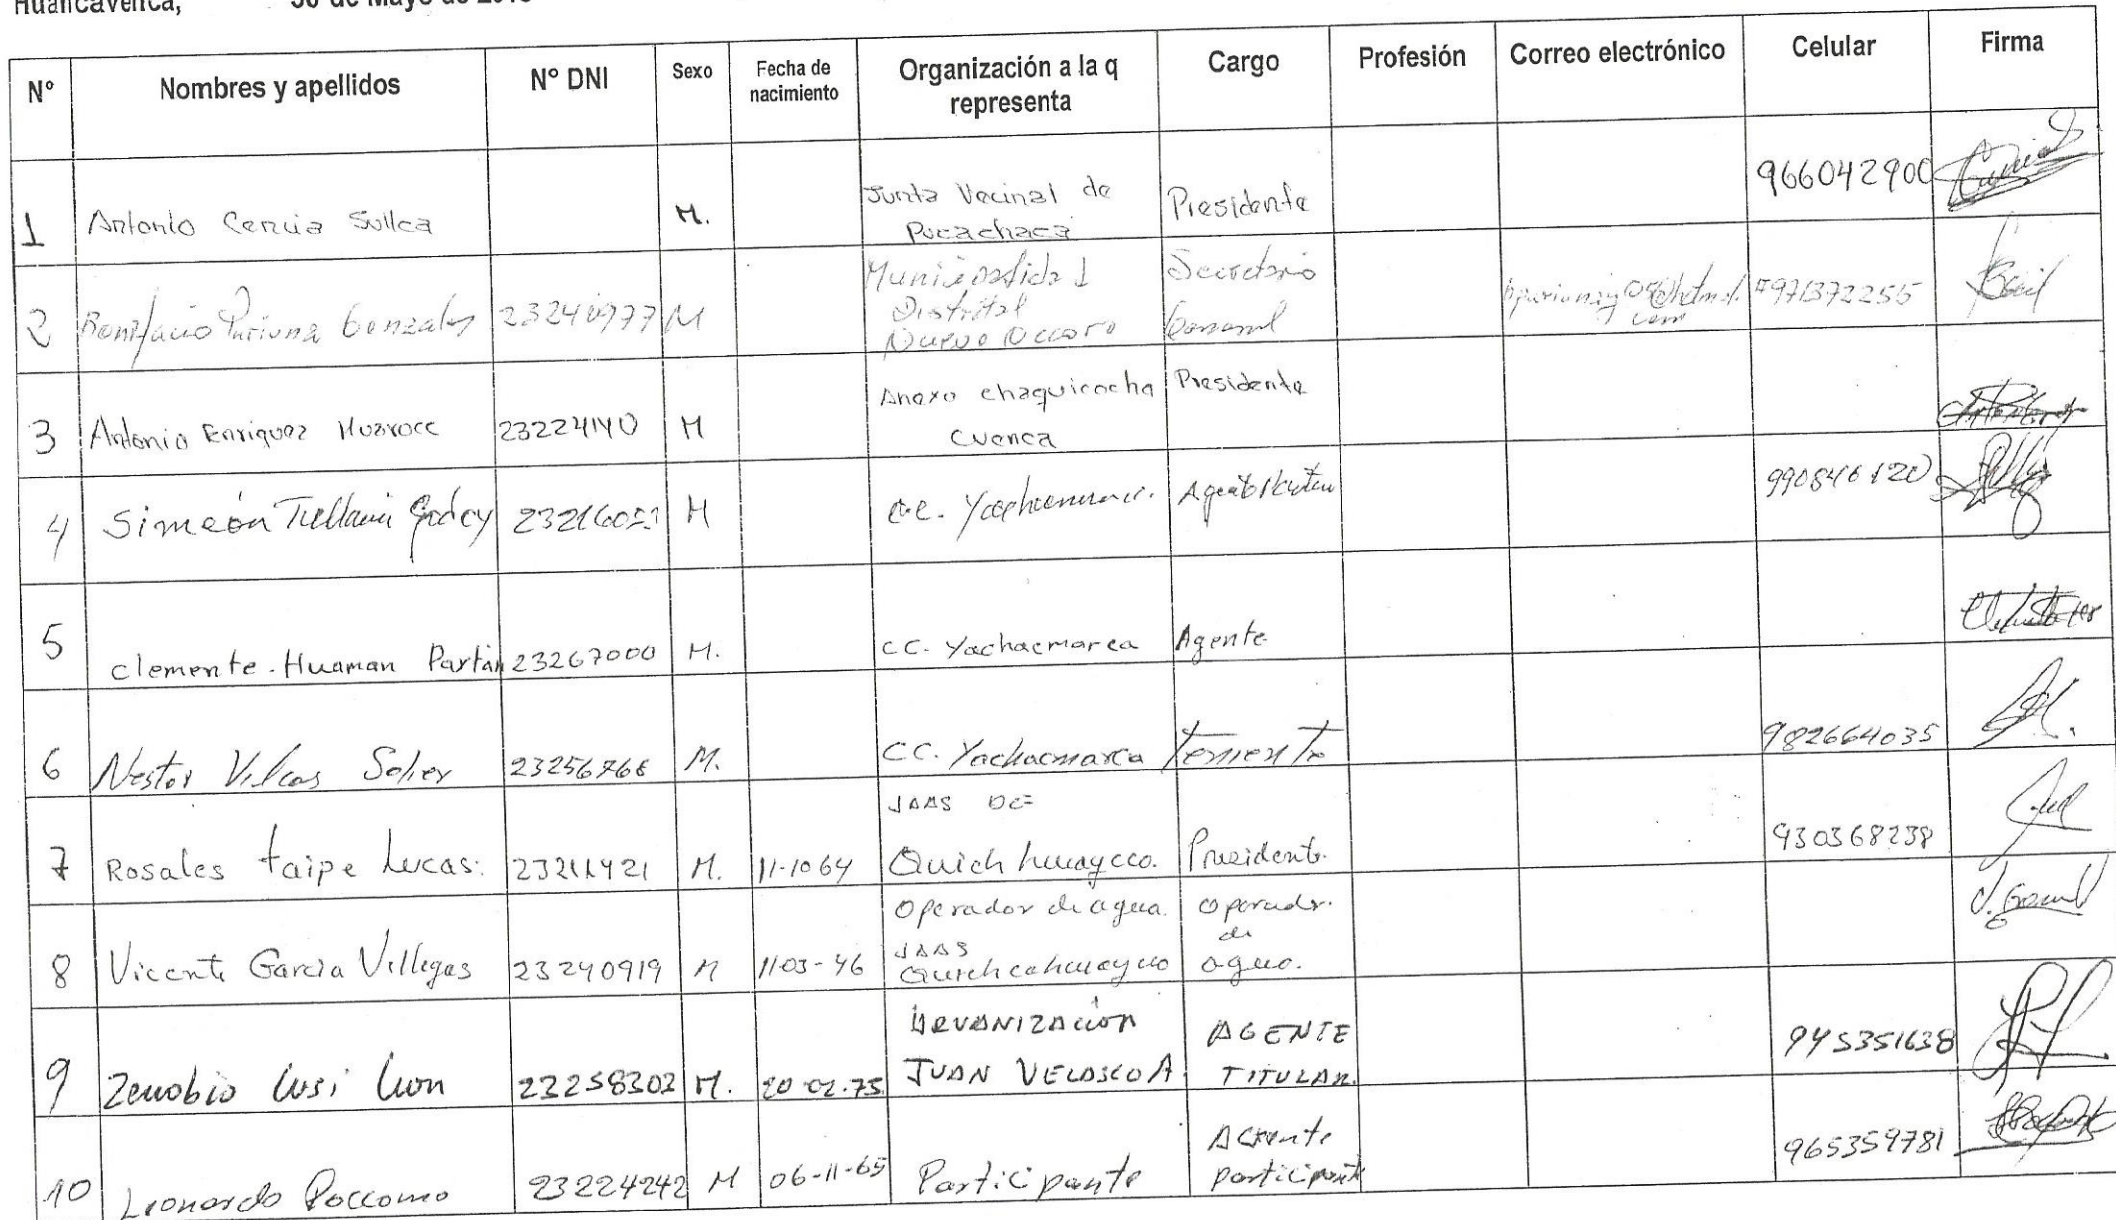 Huancavelica, 30 de Mayo de
Nº Nombres y apellidos Nº DNI Sexo Fecha de nacimiento Organización a la q representa Cargo Profesión Correo electrónico Celular Firma
1 Antonio Sullca M. Junta Vecinal de Pucachaca Presidente 966042900
2 Bonifacio Pariona Gonzales M Municipalidad Distrital Nuevo Occoro Secretario General #971372255
3 Antonio Enriquez Huarocc 23224140 M Anexo chaquicocha Cuenca Presidente
4 Simeón Godoy M 990846120
5 Clemente Huaman 23267000 M. CC. Yachacmarca Agente
6 Nestor Vilcas Soher M. CC. Yachacmarca Teniente 982664035
7 Rosales taipe Lucas. 23211421 M. 11-10 64 JAAS DE Quich huaycco. Presidente. 930368238
8 Vicente Garcia Villegas 23240919 M 11-03-46 Operador de agua. JAAS operador de agua.
9 Zenobio Cusi 23258302 M. 20-02-75 URVANIZACIÓN JUAN VELASCO A. AGENTE TITULAR. 945351638
10 Leonardo Poccomo 23224242 M 06-11-65 Participante participante 965359781